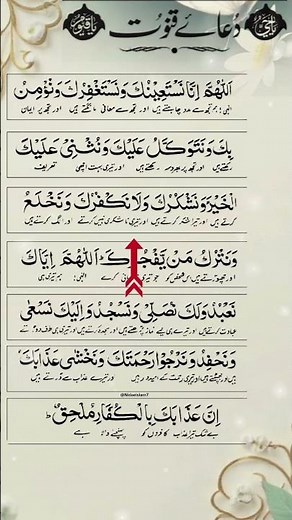 دُعائے قنوت
یا حی
یا قیوم
اَللّٰهُمَّ اِنَّا نَسْتَعِيْنُكَ وَنَسْتَغْفِرُكَ وَنُؤْمِنُ
الٰہی! ہم تجھ سے مدد چاہتے ہیں اور تجھ سے معافی مانگتے ہیں اور تجھ پر ایمان
بِكَ وَنَتَوَكَّلُ عَلَيْكَ وَنُثْنِيْ عَلَيْكَ
رکھتے ہیں اور تجھ پر بھروسہ رکھتے ہیں اور تیری بہت اچھی تعریف
الْخَيْرَ وَنَشْكُرُكَ وَلَا نَكْفُرُكَ وَنَخْلَعُ
کرتے ہیں اور تیرا شکر کرتے ہیں اور تیری ناشکری نہیں کرتے اور الگ کرتے ہیں
وَنَتْرُكُ مَنْ يَّفْجُرُكَ اَللّٰهُمَّ اِيَّاكَ
اور چھوڑتے ہیں اس شخص کو جو تیری کرے الٰہی! ہم تیری ہی
نَعْبُدُ وَلَكَ نُصَلِّيْ وَنَسْجُدُ وَاِلَيْكَ نَسْعٰى
عبادت کرتے ہیں اور تیرے ہی لیے نماز پڑھتے ہیں اور سجدہ کرتے ہیں اور تیری ہی طرف دوڑتے
وَنَحْفِدُ وَنَرْجُوْا رَحْمَتَكَ وَنَخْشٰى عَذَابَكَ
ہیں اور جھپٹتے ہیں اور تیری رحمت کے امیدوار ہیں اور تیرے عذاب سے ڈرتے ہیں
@Noiseislam7
اِنَّ عَذَابَكَ بِالْكُفَّارِ مُلْحِقٌ ط
بے شک تیرا عذاب کافروں کو پہنچنے والا ہے